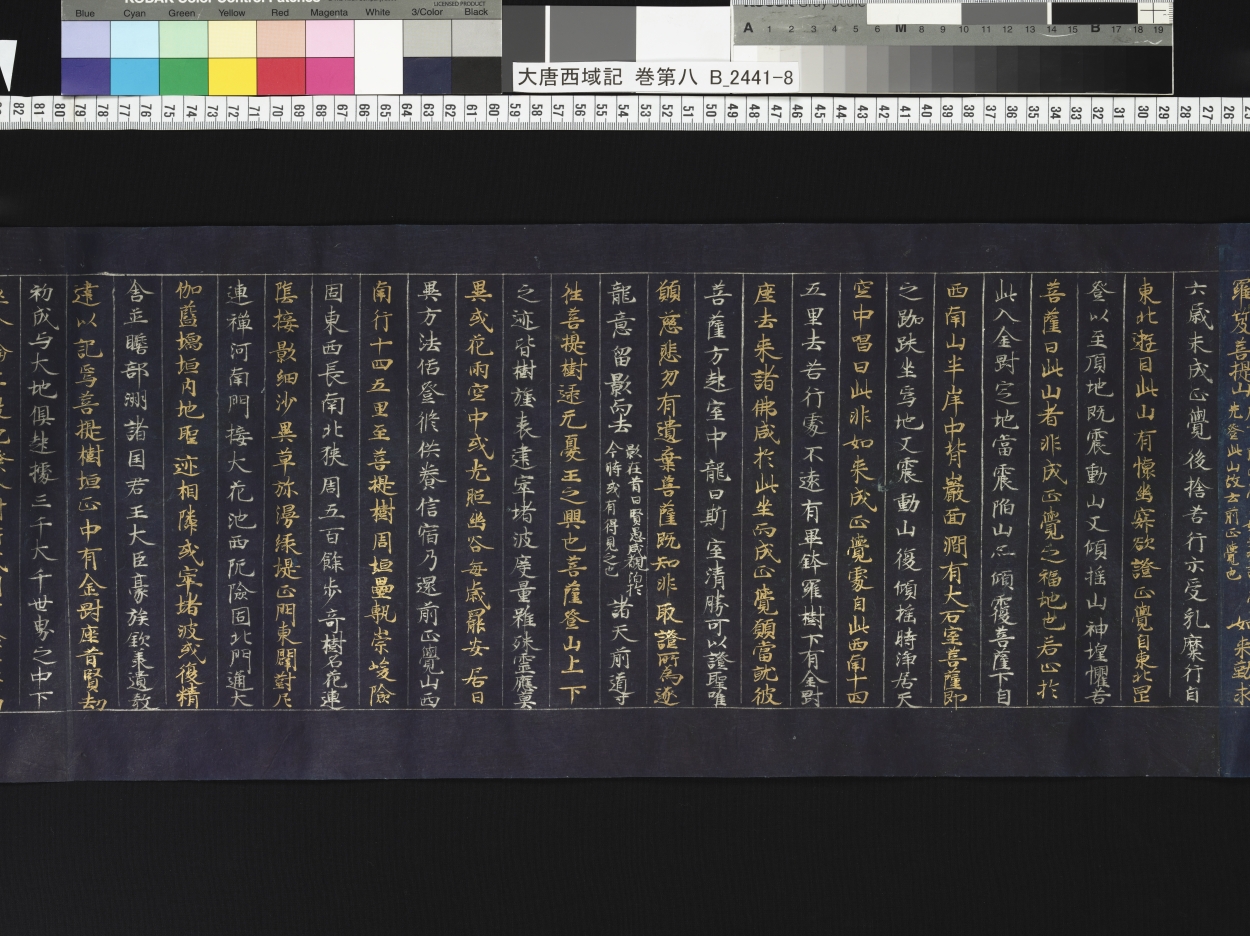 KODAK Color Control Patches
LICENSED PRODUCT
Blue Cyan Green Yellow Red Magenta White 3/Color Black
A 1 2 3 4 5 6 M 8 9 10 11 12 13 14 15 B 17 18 19
大唐西域記 巻第八 B_2441-8
82 81 80 79 78 77 76 75 74 73 72 71 70 69 68 67 66 65 64 63 62 61 60 59 58 57 56 55 54 53 52 51 50 49 48 47 46 45 44 43 42 41 40 39 38 37 36 35 34 33 32 31 30 29 28 27 26
羅笈菩提山 先登此山故云前正覺也 如来勤求
六歳未成正覺後捨苦行示受乳糜行自
東北遊目此山有懐幽寂欲證正覺自東北罡
登以至頂地既震動山又傾揺山神惶懼告
菩薩曰此山者非成正覺之福地也若止於
此入金對定地當震陥山亦傾覆菩薩下自
西南山半岸中背巌面澗有大石室菩薩即
之跏趺坐焉地又震動山復傾揺時浄居天
空中唱曰此非如来成正覺處自此西南十四
五里去苦行處不遠有畢鉢羅樹下有金對
座去来諸佛咸於此坐而成正覺願當就彼
菩薩方起室中龍曰斯室清勝可以證聖唯
願慈悲勿有遺棄菩薩既知非取證所為遂
龍意留影而去 影在昔日賢愚咸覩洎於
今時或有得見之也 諸天前導
往菩提樹逮无憂王之興也菩薩登山上下
之迹皆樹旌表建窣堵波度量雖殊霊應莫
異或花雨空中或光照幽谷毎歳罷安居日
異方法俗登修供養信宿乃還前正覺山西
南行十四五里至菩提樹周垣疊甎崇峻險
固東西長南北狭周五百餘歩奇樹名花連
蔭接影細沙異草弥漫緑堤正門東闢對尼
連禪河南門接大花池西阨險固北門通大
伽藍壖垣内地聖迹相隣或窣堵波或復精
舎並贍部洲諸国君王大臣豪族欽承遺教
建以記焉菩提樹垣正中有金對座昔賢劫
初成与大地俱起據三千大千世界之中下